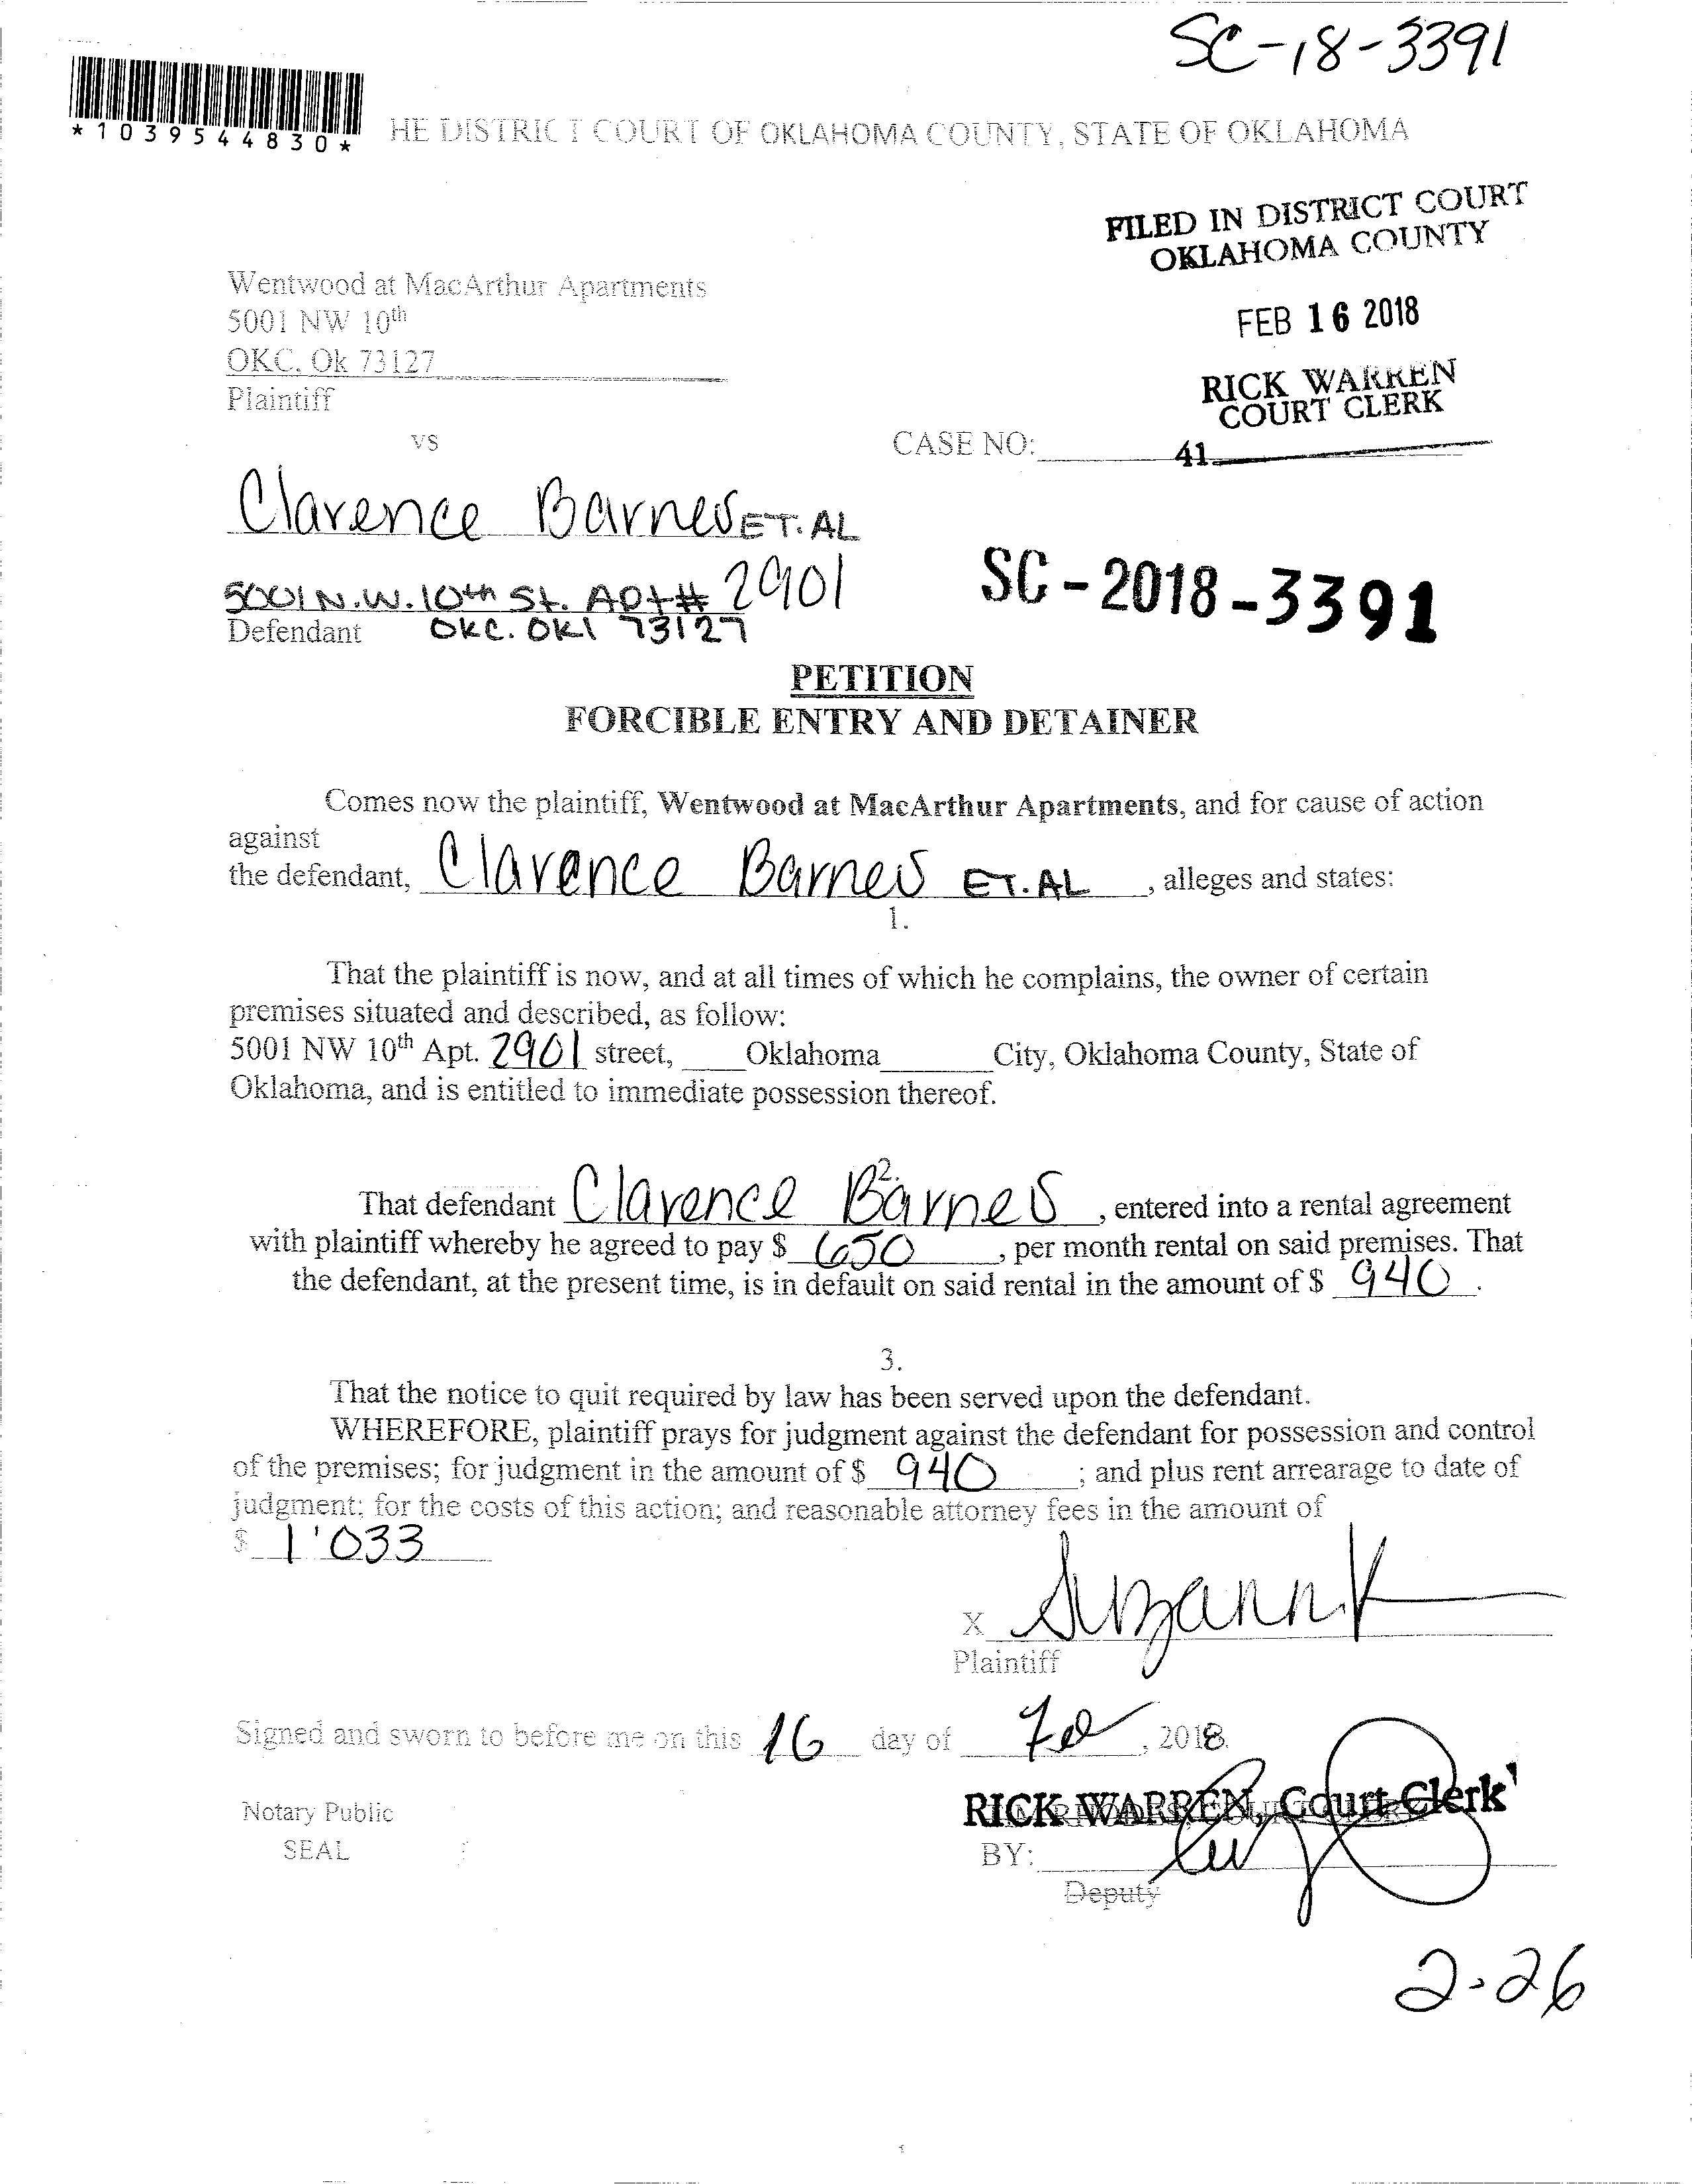 SC-18-3391
*1039544830*
HE DISTRICT COURT OF OKLAHOMA COUNTY, STATE OF OKLAHOMA
FILED IN DISTRICT COURT
OKLAHOMA COUNTY
FEB 16 2018
RICK WARREN
COURT CLERK
Wentwood at MacArthur Apartments
5001 NW 10th
OKC, Ok 73127
Plaintiff
vs
CASE NO: 41
Clarence Barnes ET. AL
5001 N.W. 10th St. Apt# 2901
Defendant OKC. OKl 73127
SC-2018-3391
PETITION
FORCIBLE ENTRY AND DETAINER
Comes now the plaintiff, Wentwood at MacArthur Apartments, and for cause of action
against
the defendant, Clarence Barnes ET. AL , alleges and states:
1.
That the plaintiff is now, and at all times of which he complains, the owner of certain
premises situated and described, as follow:
5001 NW 10th Apt. 2901 street, Oklahoma City, Oklahoma County, State of
Oklahoma, and is entitled to immediate possession thereof.
2.
That defendant Clarence Barnes , entered into a rental agreement
with plaintiff whereby he agreed to pay $ 650 , per month rental on said premises. That
the defendant, at the present time, is in default on said rental in the amount of $ 940 .
3.
That the notice to quit required by law has been served upon the defendant.
WHEREFORE, plaintiff prays for judgment against the defendant for possession and control
of the premises; for judgment in the amount of $ 940 ; and plus rent arrearage to date of
judgment; for the costs of this action; and reasonable attorney fees in the amount of
$ 1'033
X
Plaintiff
Signed and sworn to before me on this 16 day of , 2018.
Notary Public
SEAL
RICK WARREN, Court Clerk
BY:
Deputy
2-26